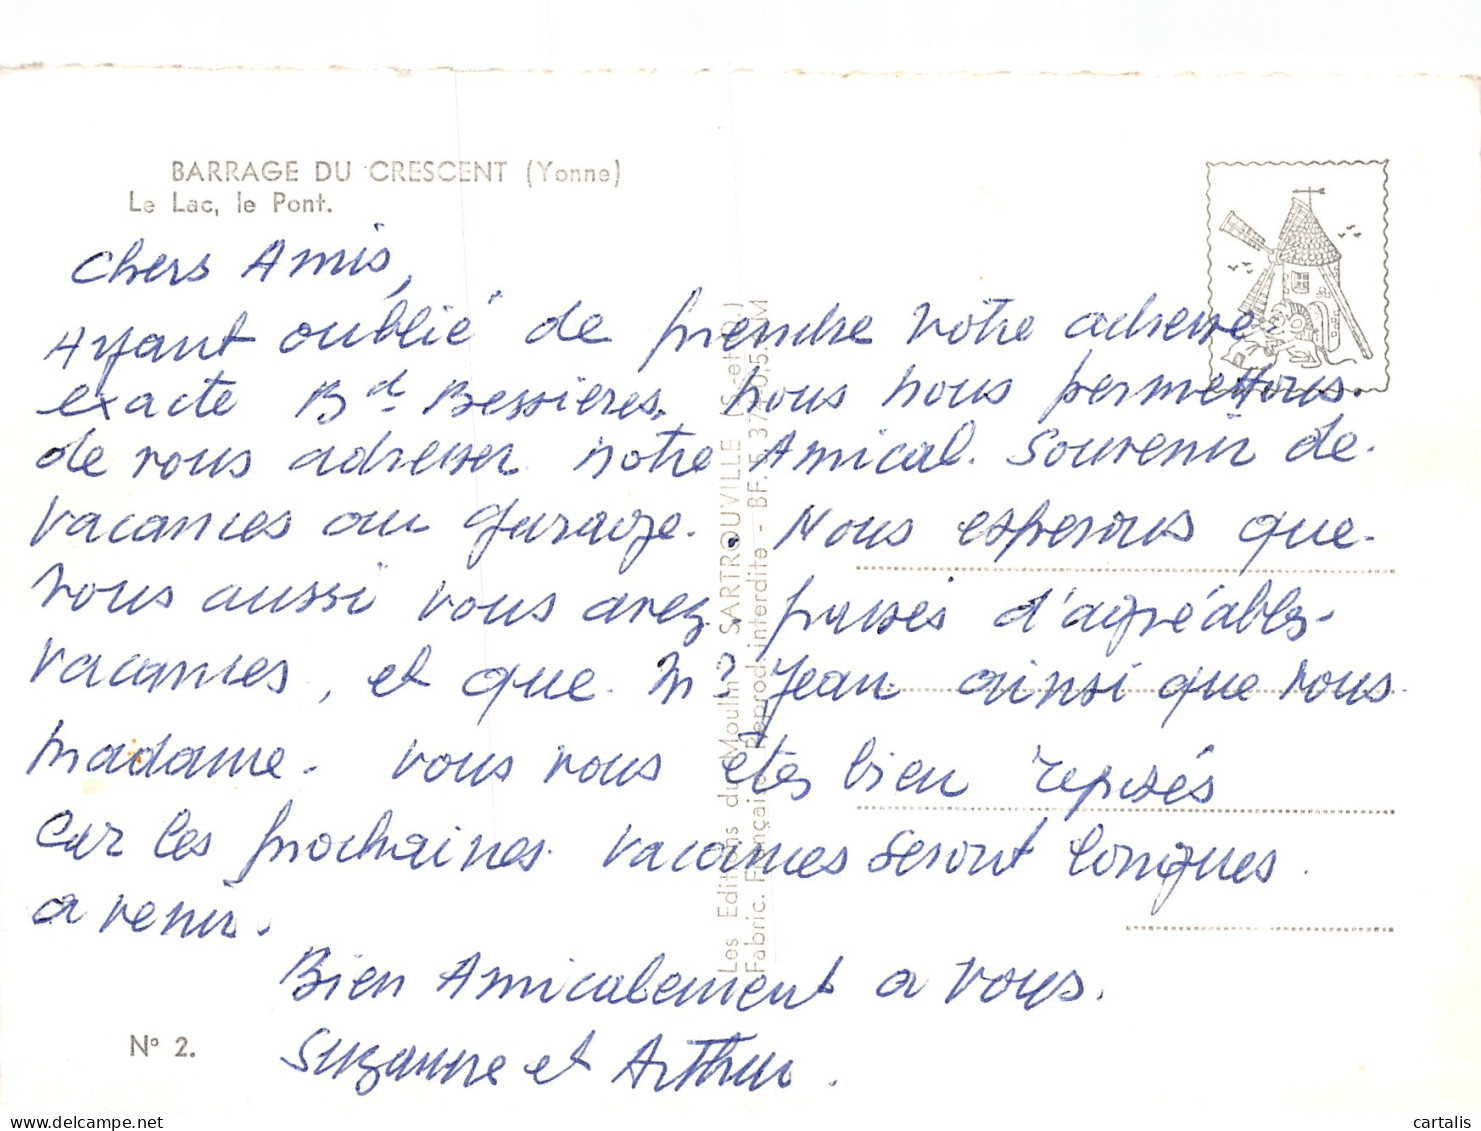 BARRAGE DU CRESCENT (Yonne)
Le Lac, le Pont.
Chers Amis,
Ayant oublié de prendre votre adresse
exacte Bd Bessières. nous nous permettons.
de vous adresser notre Amical. Souvenir de.
vacances au garage. Nous esperons que.
vous aussi vous avez. passés d'agréables.
vacances, et que. Mr Jean ainsi que vous.
madame. vous vous êtes bien reposés
car les prochaines. vacances seront longues.
a venir.
Bien Amicalement a vous.
Suzanne et Arthur.
N° 2.
Les Editions du Moulin SARTROUVILLE (S.-et-O.)
Fabric. Française Reprod. interdite - BF. 5.37
cartalis